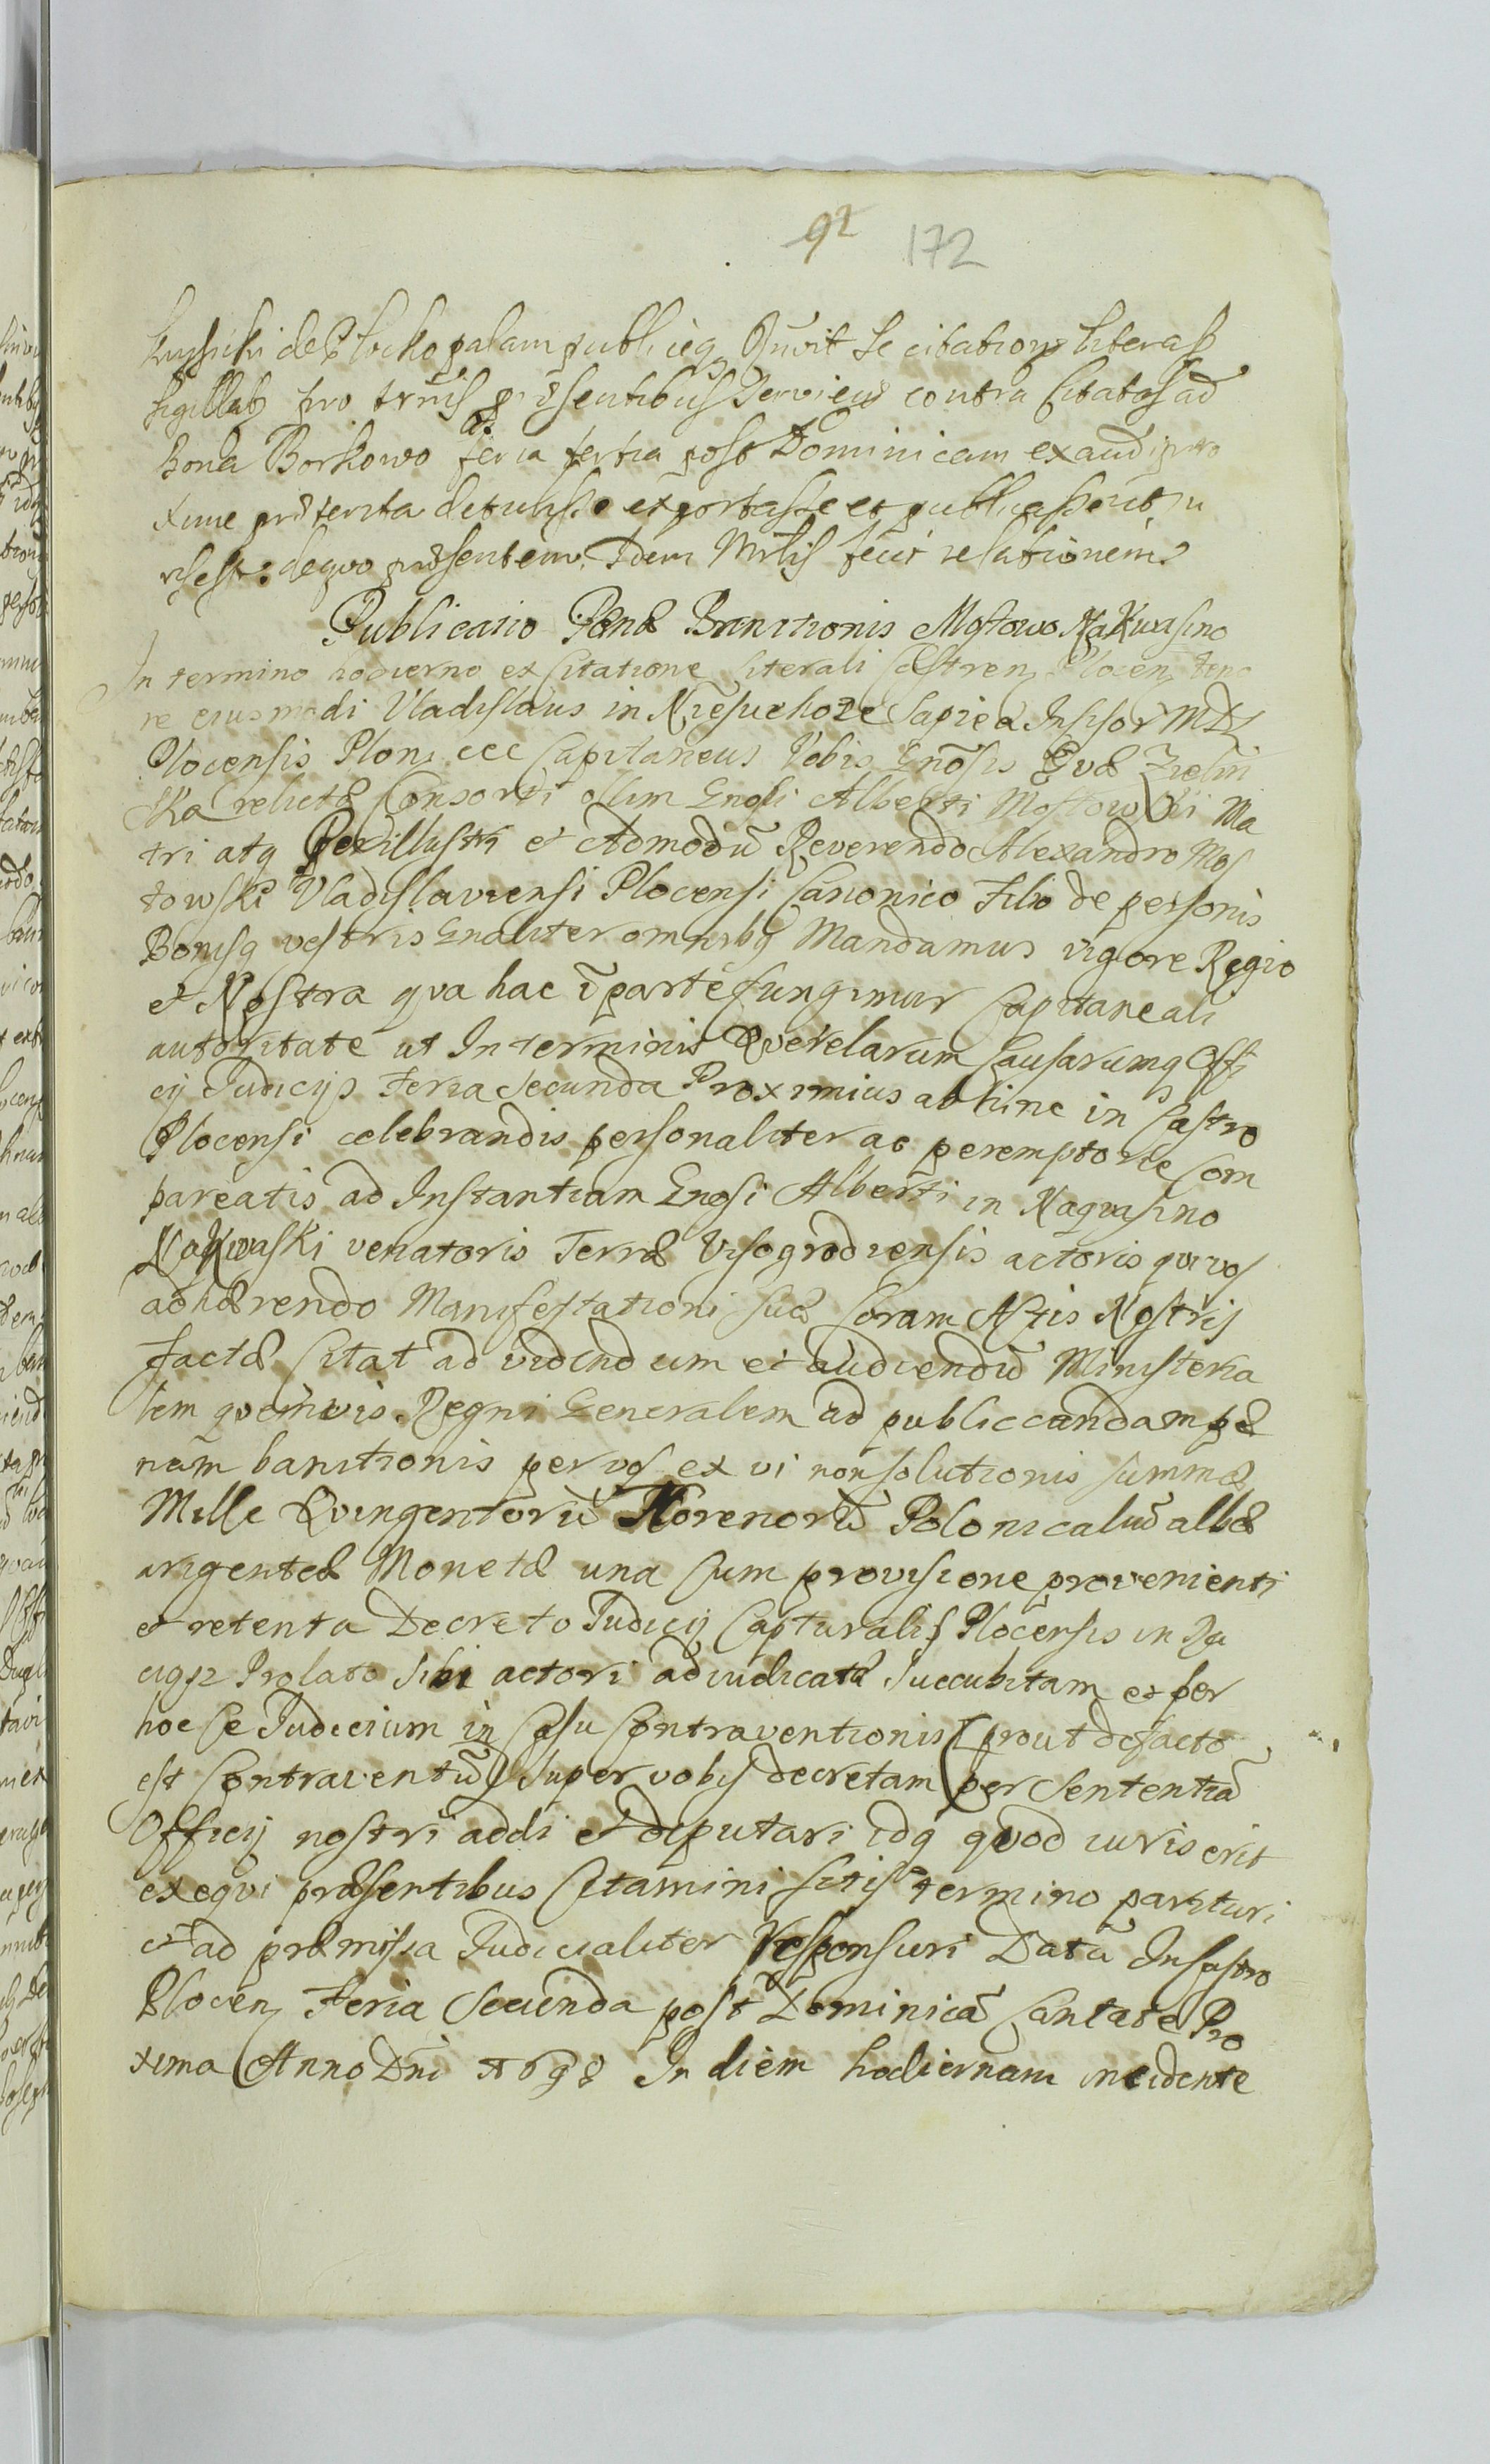 92 172
de Plocko palam publiceq Q̃uvit se citationis literas
sigillatas pro tr̃nis præsentibus serviens contra Citatos ad
bona Borkowo feria tertia post Dominicam exaudi pro
xime præterita detulisse et portasse et publicasse
de quo præsentem Idem Mr̃lis fecit relationem
Publicatio Pænæ Bannitionis Mostowo Nakwasino
In termino hodierno ex Citatione literali Castren Plocen teno
re eiusmodi Vladislaus in Niesuchoze Sapiea Incisor MDL
Plocensis Plons ccc Capitaneus Vobis Gnõsis Evæ Zielin
ska relictæ Consorti olim Gnosi Alberti Mostowski Ma
tri atq Perillustri et Admodũ Reverendo Alexandro Mos
towski Vladislaviensi Plocensi Canonico Filio de personis
Bonisq vestris Gnaliter omnibq Mandamus vigore Regio
et Nostra qva hac ĩ parte fungimur Capitaneali
autoritate ut In terminis Qverelarum Causarumq Offi
cij Iudicijs Feria Secunda Proximius abhinc in Castro
Plocensi celebrandis personaliter ac peremptorie Com
pareatis ad Instantiam Gnosi Alberti in Naqvasino
NaKwaski venatoris Terræ Visogrodiensis actoris qui vos
adhærendo Manifestationi suæ Coram Actis Nostris
factæ Citat ad videndum et audiendũ Ministeria
lem qvemvis Regni Generalem ad publiccandam pæ
nam bannitionis per vos ex vi non solutionis summæ
Mille Qvingentorũ Florenorũ Polonicaliũ albæ
argenteæ Monetæ una Cum provisione provenienti
et retenta Decreto Iudicij Capturalis Plocensis in Ra
ciąz Prolato sibi actori adiudicatæ succubitam et per
hoc ce Iudicium in Casu Contraventionis (prout de facto
est Contraventũ) super vobis decretam per Sententiã
Officij nostri addi et deputari idq qvod iuris erit
exeqvi præsentibus Citamini sitis termino parituri
et ad præmissa Iudicialiter Responsuri Datũ In Castro
Plocen Feria Secunda post Dominicã Cantate Pro
xima Anno Dni 1698 In diem hodiernam incidente